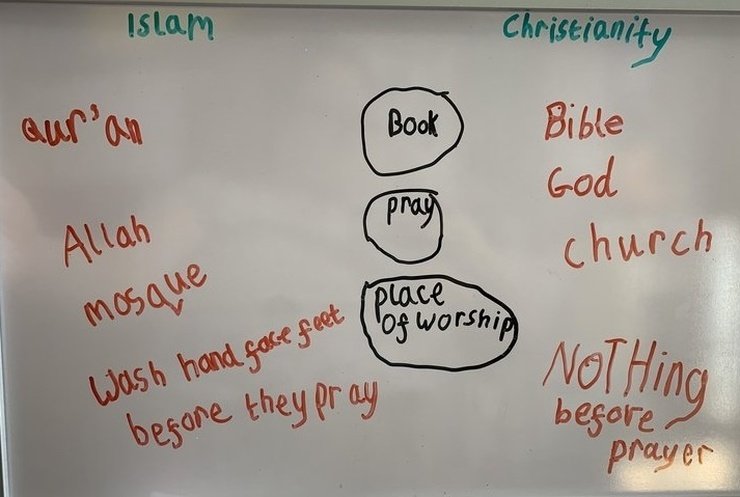 Islam
Christianity
Qur'an
Book
Bible
God
pray
Allah
church
mosque
place
of worship
Wash hand face feet
before they pray
NOTHing
before
prayer